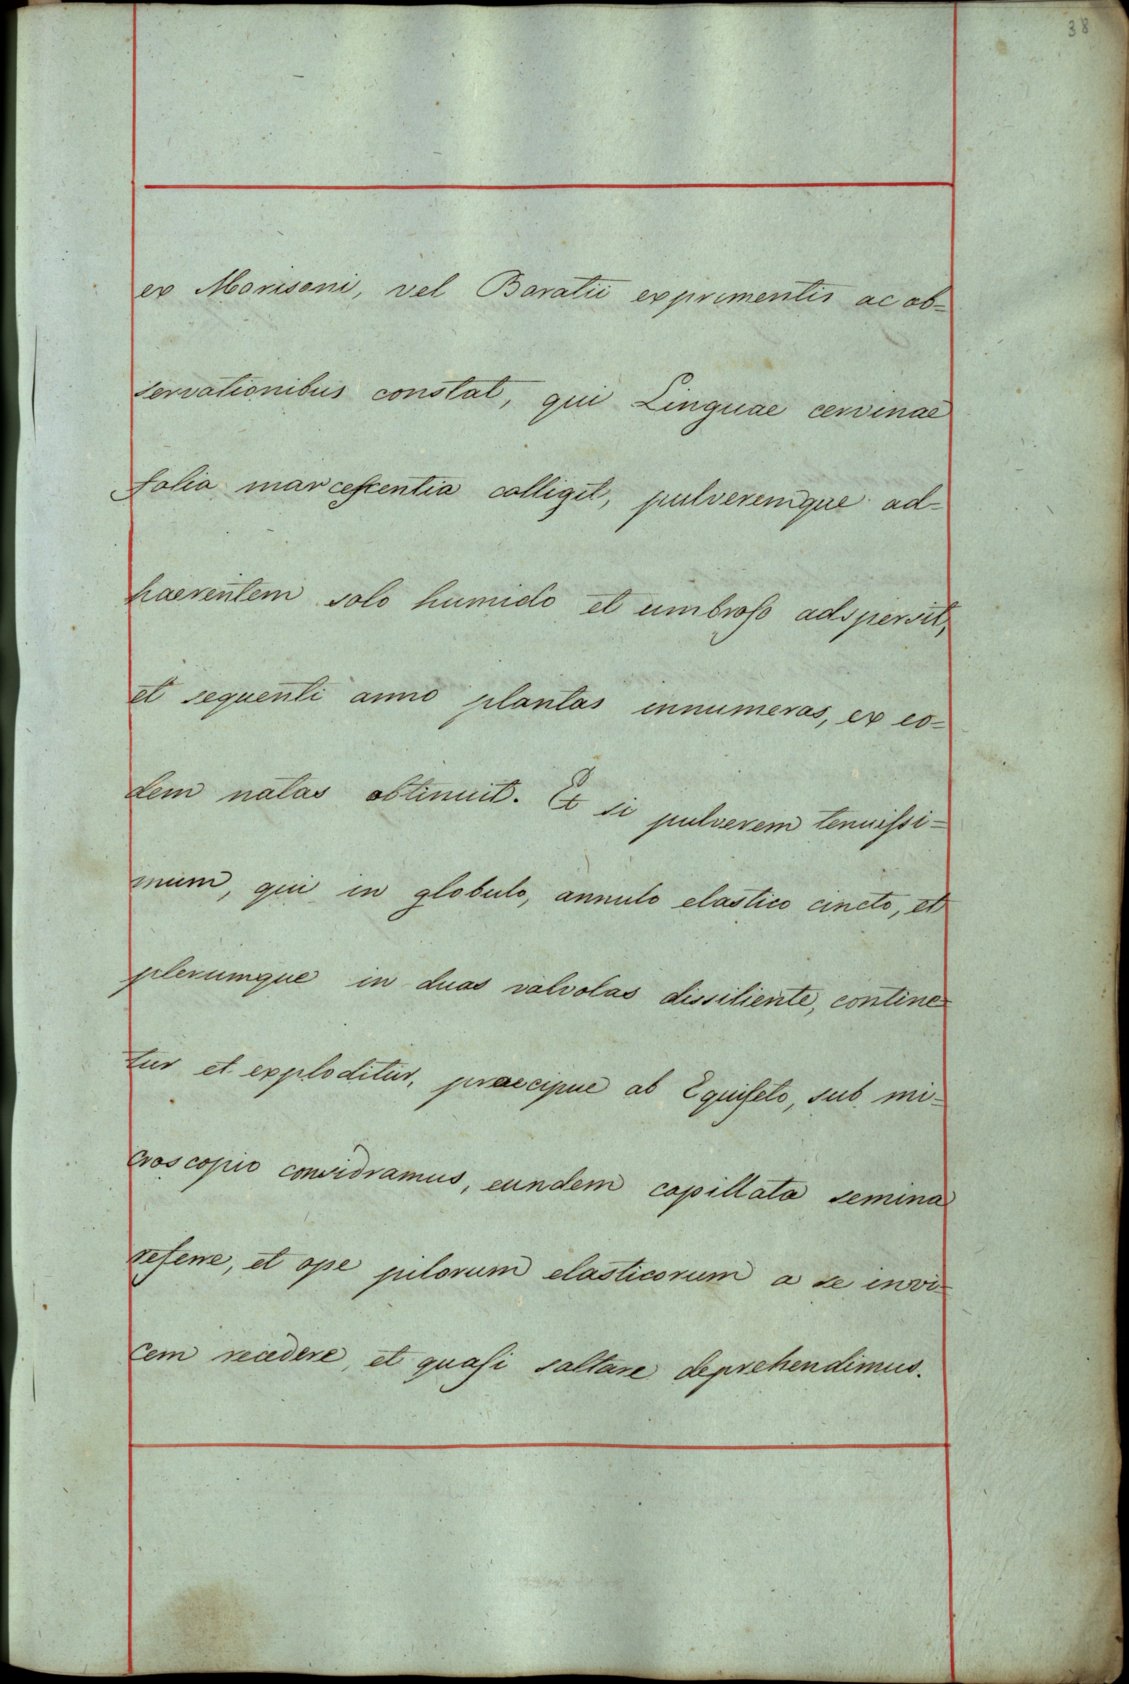 38
ex Morisoni, vel Baratii exprimentis ac ob=
servationibus constat, qui Linguae cervinae
folia marceſcentia colligit, pulveremque ad=
haerentem solo humido et umbroſo adspersit,
et sequenti anno plantas innumeras, ex eo=
dem natas obtinuit. Et si pulverem tenuiſsi=
mum, qui in globulo, annulo elastico cincto, et
plerumque in duas valvolas dissiliente, contine
tur et exploditur, praecipue ab Equiſeto, sub mi=
croscopio considramus, eundem capillata semina
referre, et ope pilorum elasticorum a se invi=
cem recedere, et quaſi saltare deprehendimus.